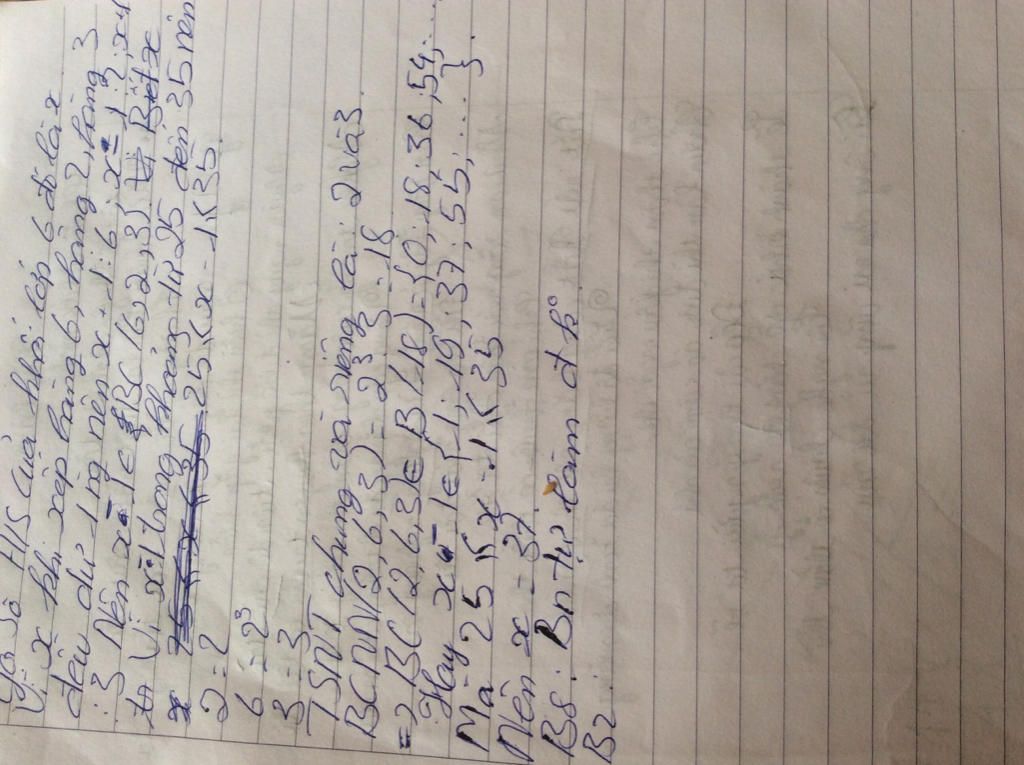 Gọi số H/S của khối lớp 6 đó là x
Vì x khi xếp hàng 6, hàng 2, hàng 3
đều dư 1 ng nên x - 1 : 6 ; x - 1 : 2, x-1
: 3 Nên x - 1 ∈ BC (6,2,3)
Vì x-1 trong khoảng từ 25 đến 35 nên
25 ≤ x - 1 ≤ 35
2 = 2
6 = 2³
3 = 3
TSNT chung và riêng là : 2 và 3.
BCNN (2,6,3) = 2³ 3 = 18
=> BC (2,6,3) ∈ B (18) = {0;18;36,54;...
Hay x - 1 ∈ {1; 19; 37; 55; .... }.
Mà 25 ≤ x - 1 ≤ 35
Nên x = 37
B8 : Bn tự làm đ k°
B2 :